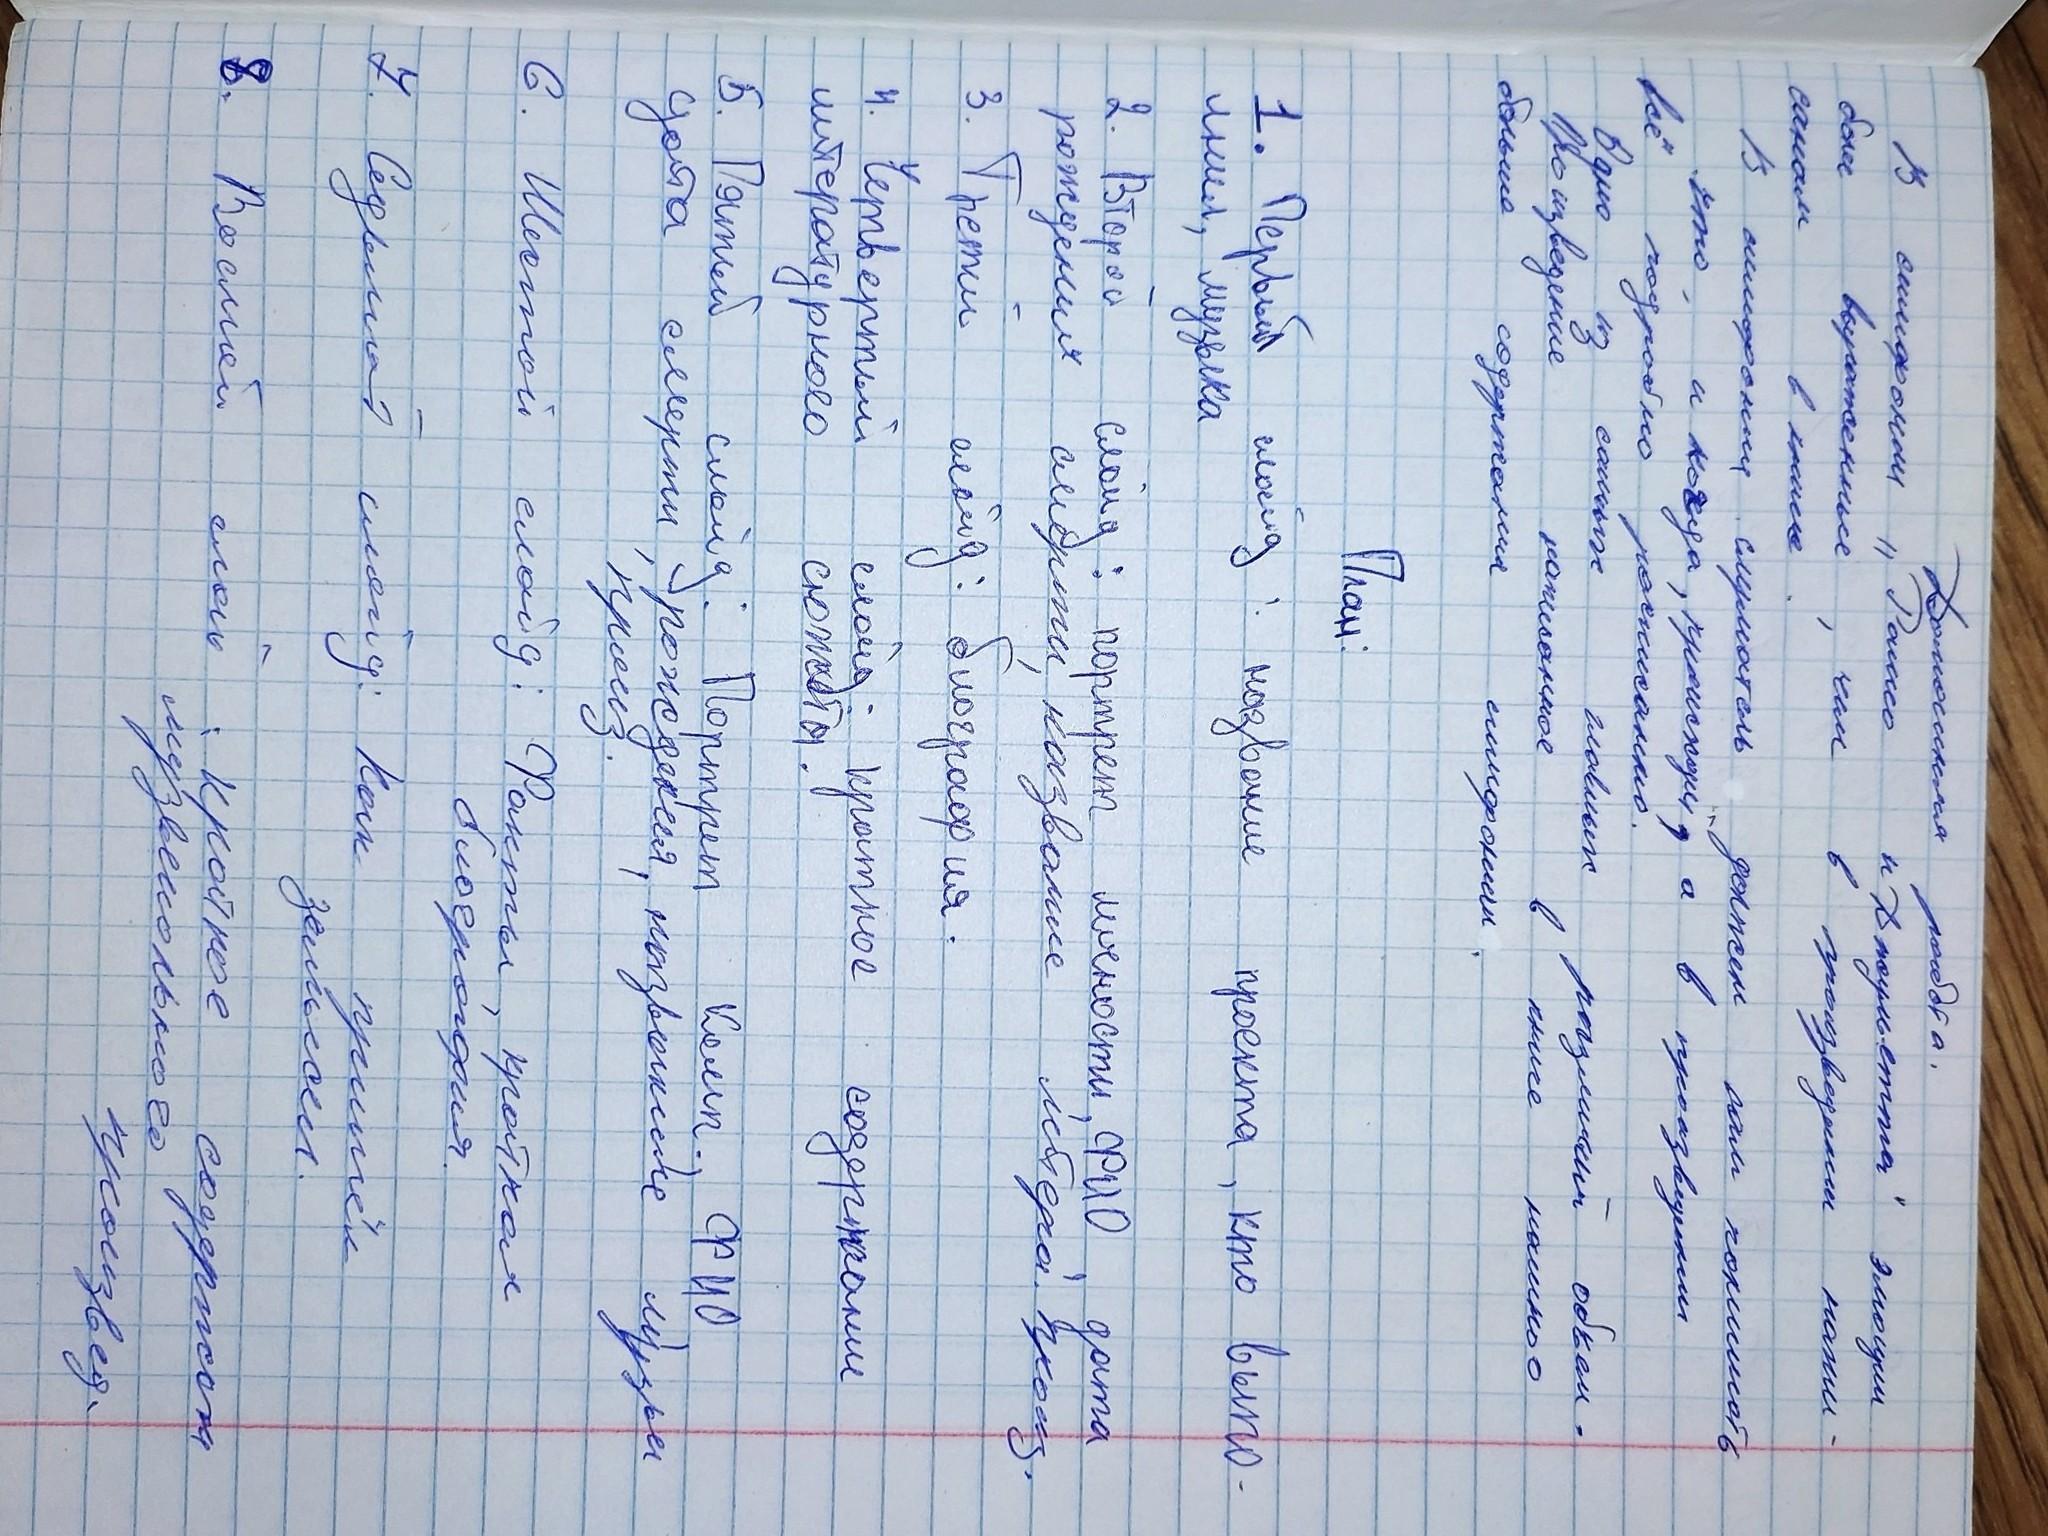 Домашняя работа.
В симфонии "Ромео и Джульетта" эмоции
более выраженные, чем в произведении напи-
саном в книге.
В симфонии слушатель должен сам понимать
кто, и когда, а в произведении
всё подробно расписанно.
Одно из самых главных различий объем.
Произведение написанное в книге намного
больше содержания симфонии.
План:
1. Первый слайд: название проекта, кто выпо-
лнил, музыка
2. Второй слайд: портрет личности, ФИО дата
рождения смерти, название литерат. произ.
3. Третий слайд: биография.
4. Четвертый слайд: кратное содержание
литературного сюжета.
5. Пятый слайд: Портрет комп., ФИО
дата смерти, рождения, название музы
произ.
6. Шестой слайд: Факты, краткая
биография.
7. Седьмой слайд: Как пришёл
замысел.
8. Восьмой слай: краткое содержан
музыкального произвед.